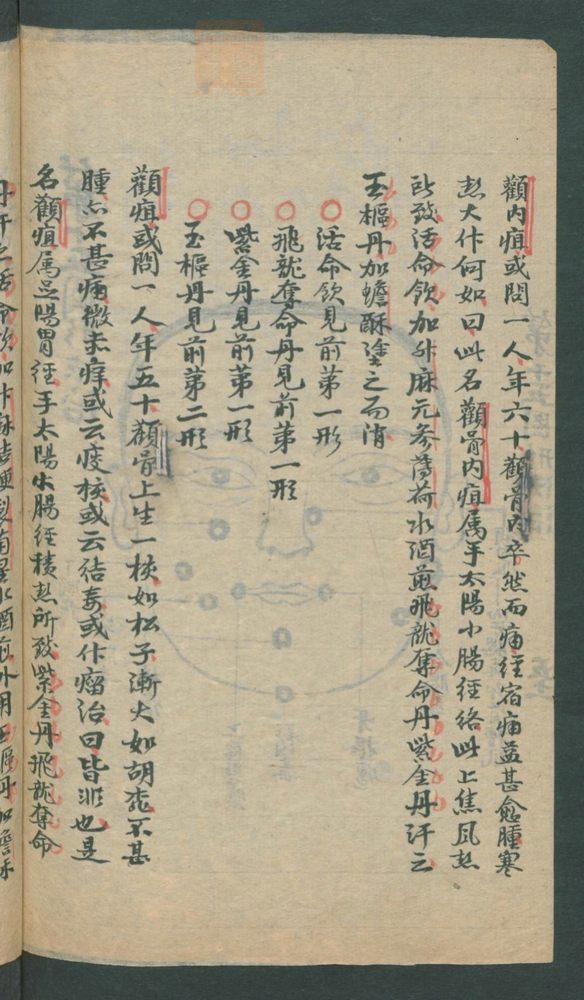 顴內疽或問一人年六十顴骨內卒然而痛經宿痛益甚愈腫寒
热大作何如曰此名顴骨內疽属手太陽小腸經絡此上焦風热
所致活命飲加升麻元參薄荷水酒煎飛龍奪命丹紫金丹汗之
玉樞丹加蟾酥塗之而消
○活命飲見前第一形
○飛龍奪命丹見前第一形
○紫金丹見前第一形
○玉樞丹見前第二形
顴疽或問一人年五十顴骨上生一核如松子漸大如胡桃不甚
腫亦不甚痛微赤痒或云痰核或云結毒或作瘤治曰皆非也是
名顴疽属足陽胃經手太陽小腸經積热所致紫金丹飛龍奪命